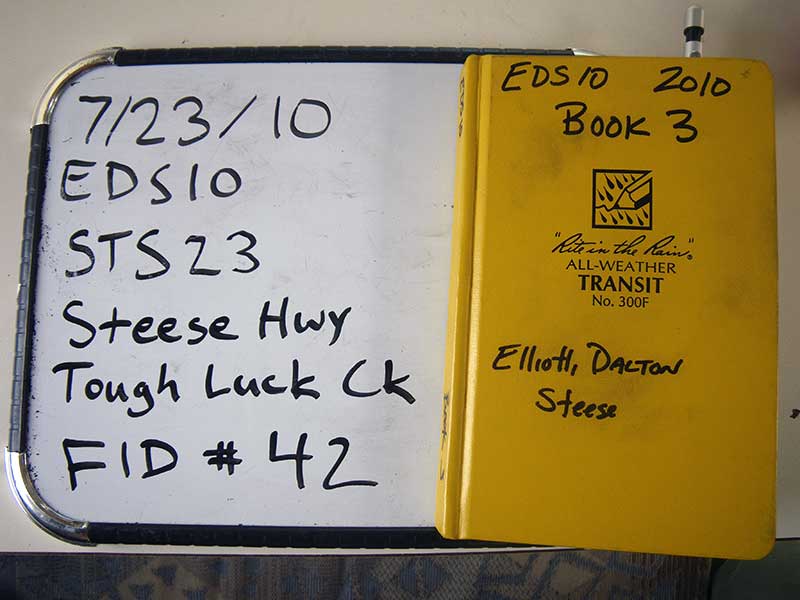 7/23/10
EDS10
STS23
Steese Hwy
Tough Luck Ck
FID # 42
EDS10 2010
BOOK 3
"Rite in the Rain"
ALL-WEATHER
TRANSIT
No. 300F
Elliott, DALTON
Steese